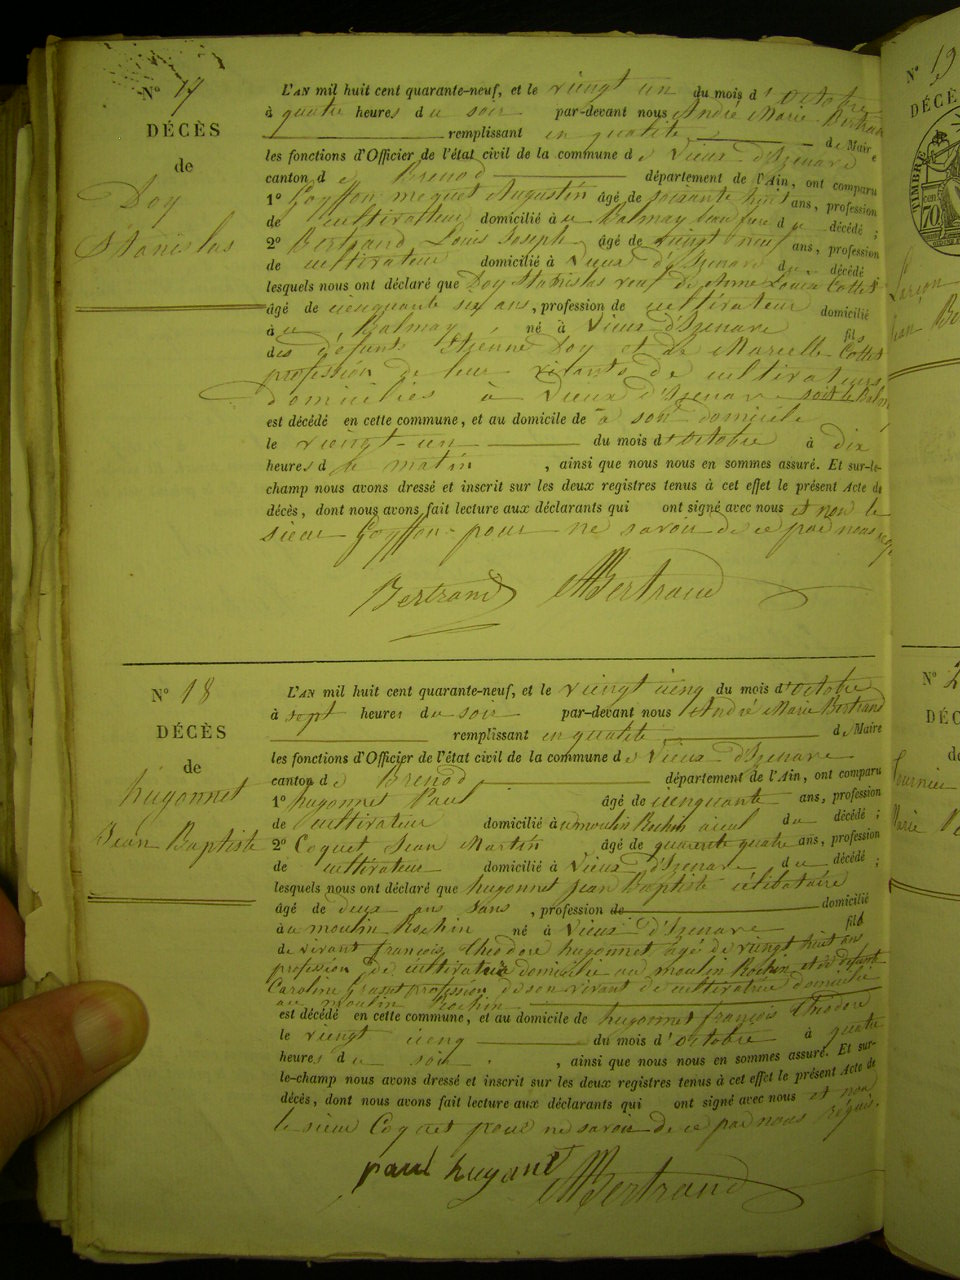 N° 17
DÉCÈS
de
Doy
Stanislas
L'AN mil huit cent quarante-neuf, et le vingt un du mois d'Octobre
à quatre heures du soir par-devant nous André Marie Bertrand
remplissant en qualité de Maire
les fonctions d'Officier de l'état civil de la commune de Vieux d'Izenave
canton de Brenod département de l'Ain, ont comparu
1° Goyffon Augustin âgé de soixante huit ans, profession
de cultivateur domicilié à Balmay beau frère du décédé ;
2° Bertrand Louis Joseph âgé de vingt neuf ans, profession
de cultivateur domicilié à Vieux d'Izenave du décédé
lesquels nous ont déclaré que Doy Stanislas veuf de Anne Louise Cottet
âgé de cienquante six ans, profession de cultivateur domicilié
à Balmay né à Vieux d'Izenave fils
des défunts Etienne Doy et de Marcelle Cottet
profession de leur vivants de cultivateurs
domiciliés à Vieux d'Izenave
est décédé en cette commune, et au domicile de à son domicile
le viengt-un du mois d'Octobre à dix
heures du matin, ainsi que nous nous en sommes assuré. Et sur-le-
champ nous avons dressé et inscrit sur les deux registres tenus à cet effet le présent Acte de
décès, dont nous avons fait lecture aux déclarants qui ont signé avec nous et non le
sieur Goyffon pour ne savoir de ce par nous
Bertrand AMBertrand
N° 18
DÉCÈS
de
hugonnet
Jean Baptiste
L'AN mil huit cent quarante-neuf, et le viengt cieng du mois d'Octobre
à sept heures du soir par-devant nous André Marie Bertrand
remplissant en qualité de Maire
les fonctions d'Officier de l'état civil de la commune de Vieux d'Izenave
canton de Brenod département de l'Ain, ont comparu
1° hugonnet Paul âgé de cienquante ans, profession
de cultivateur domicilié au moulin Rochin aieul du décédé ;
2° Coquet Jean Martin âgé de quarente quatre ans, profession
de cultivateur domicilié à Vieux d'Izenave du décédé ;
lesquels nous ont déclaré que hugonnet Jean Baptiste célibataire
âgé de deux ans sans, profession de domicilié
au moulin Rochin né à Vieux d'Izenave fils
de vivant françois Théodore hugonnet âgé de viengt huit ans
profession de cultivateur domicilié au moulin Rochin et de défunte
Caroline profession de son vivant de cultivatrice domicilié
au moulin Rochin
est décédé en cette commune, et au domicile de hugonnet françois Théodore
le viengt cieng du mois d'Octobre à quatre
heures du soir, ainsi que nous nous en sommes assuré. Et sur-
le-champ nous avons dressé et inscrit sur les deux registres tenus à cet effet le présent Acte de
décès, dont nous avons fait lecture aux déclarants qui ont signé avec nous et non
le sieur Coquet pour ne savoir de ce par nous réquis.
paul hugonet AMBertrand